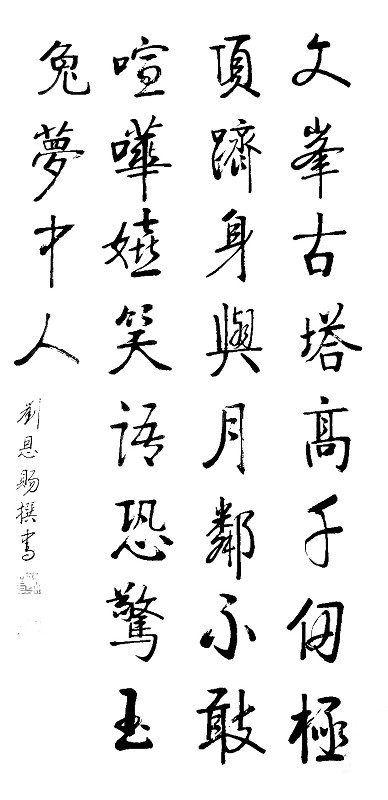 文峯古塔高千仞極
頂躋身與月鄰不敢
喧嘩嬉笑語恐驚玉
兔夢中人
劉恩賜撰書